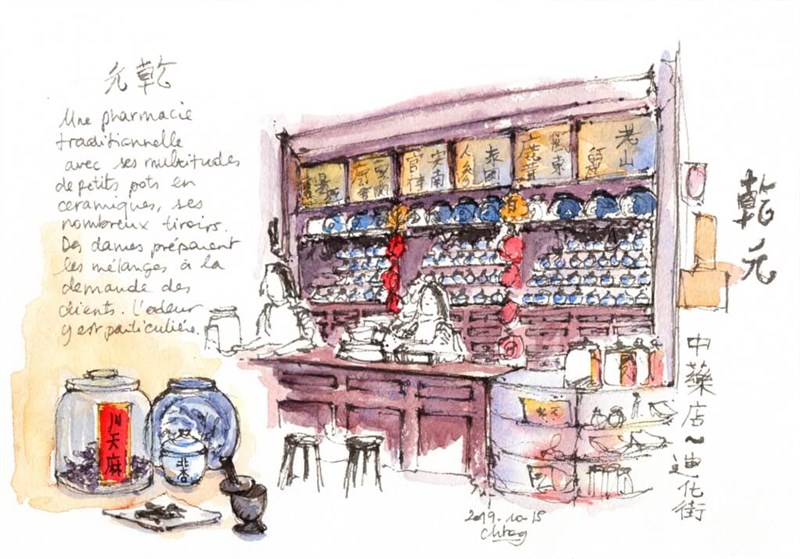 乾元
Une pharmacie
traditionnelle
avec ses multitudes
de petits pots en
céramiques, ses
nombreux tiroirs.
Des dames préparent
les mélanges à la
demande des
clients. L'odeur
y est particulière.
老山
泰国
安南
官桂
乾元
中藥店~迪化街
川天麻
2019.10.15